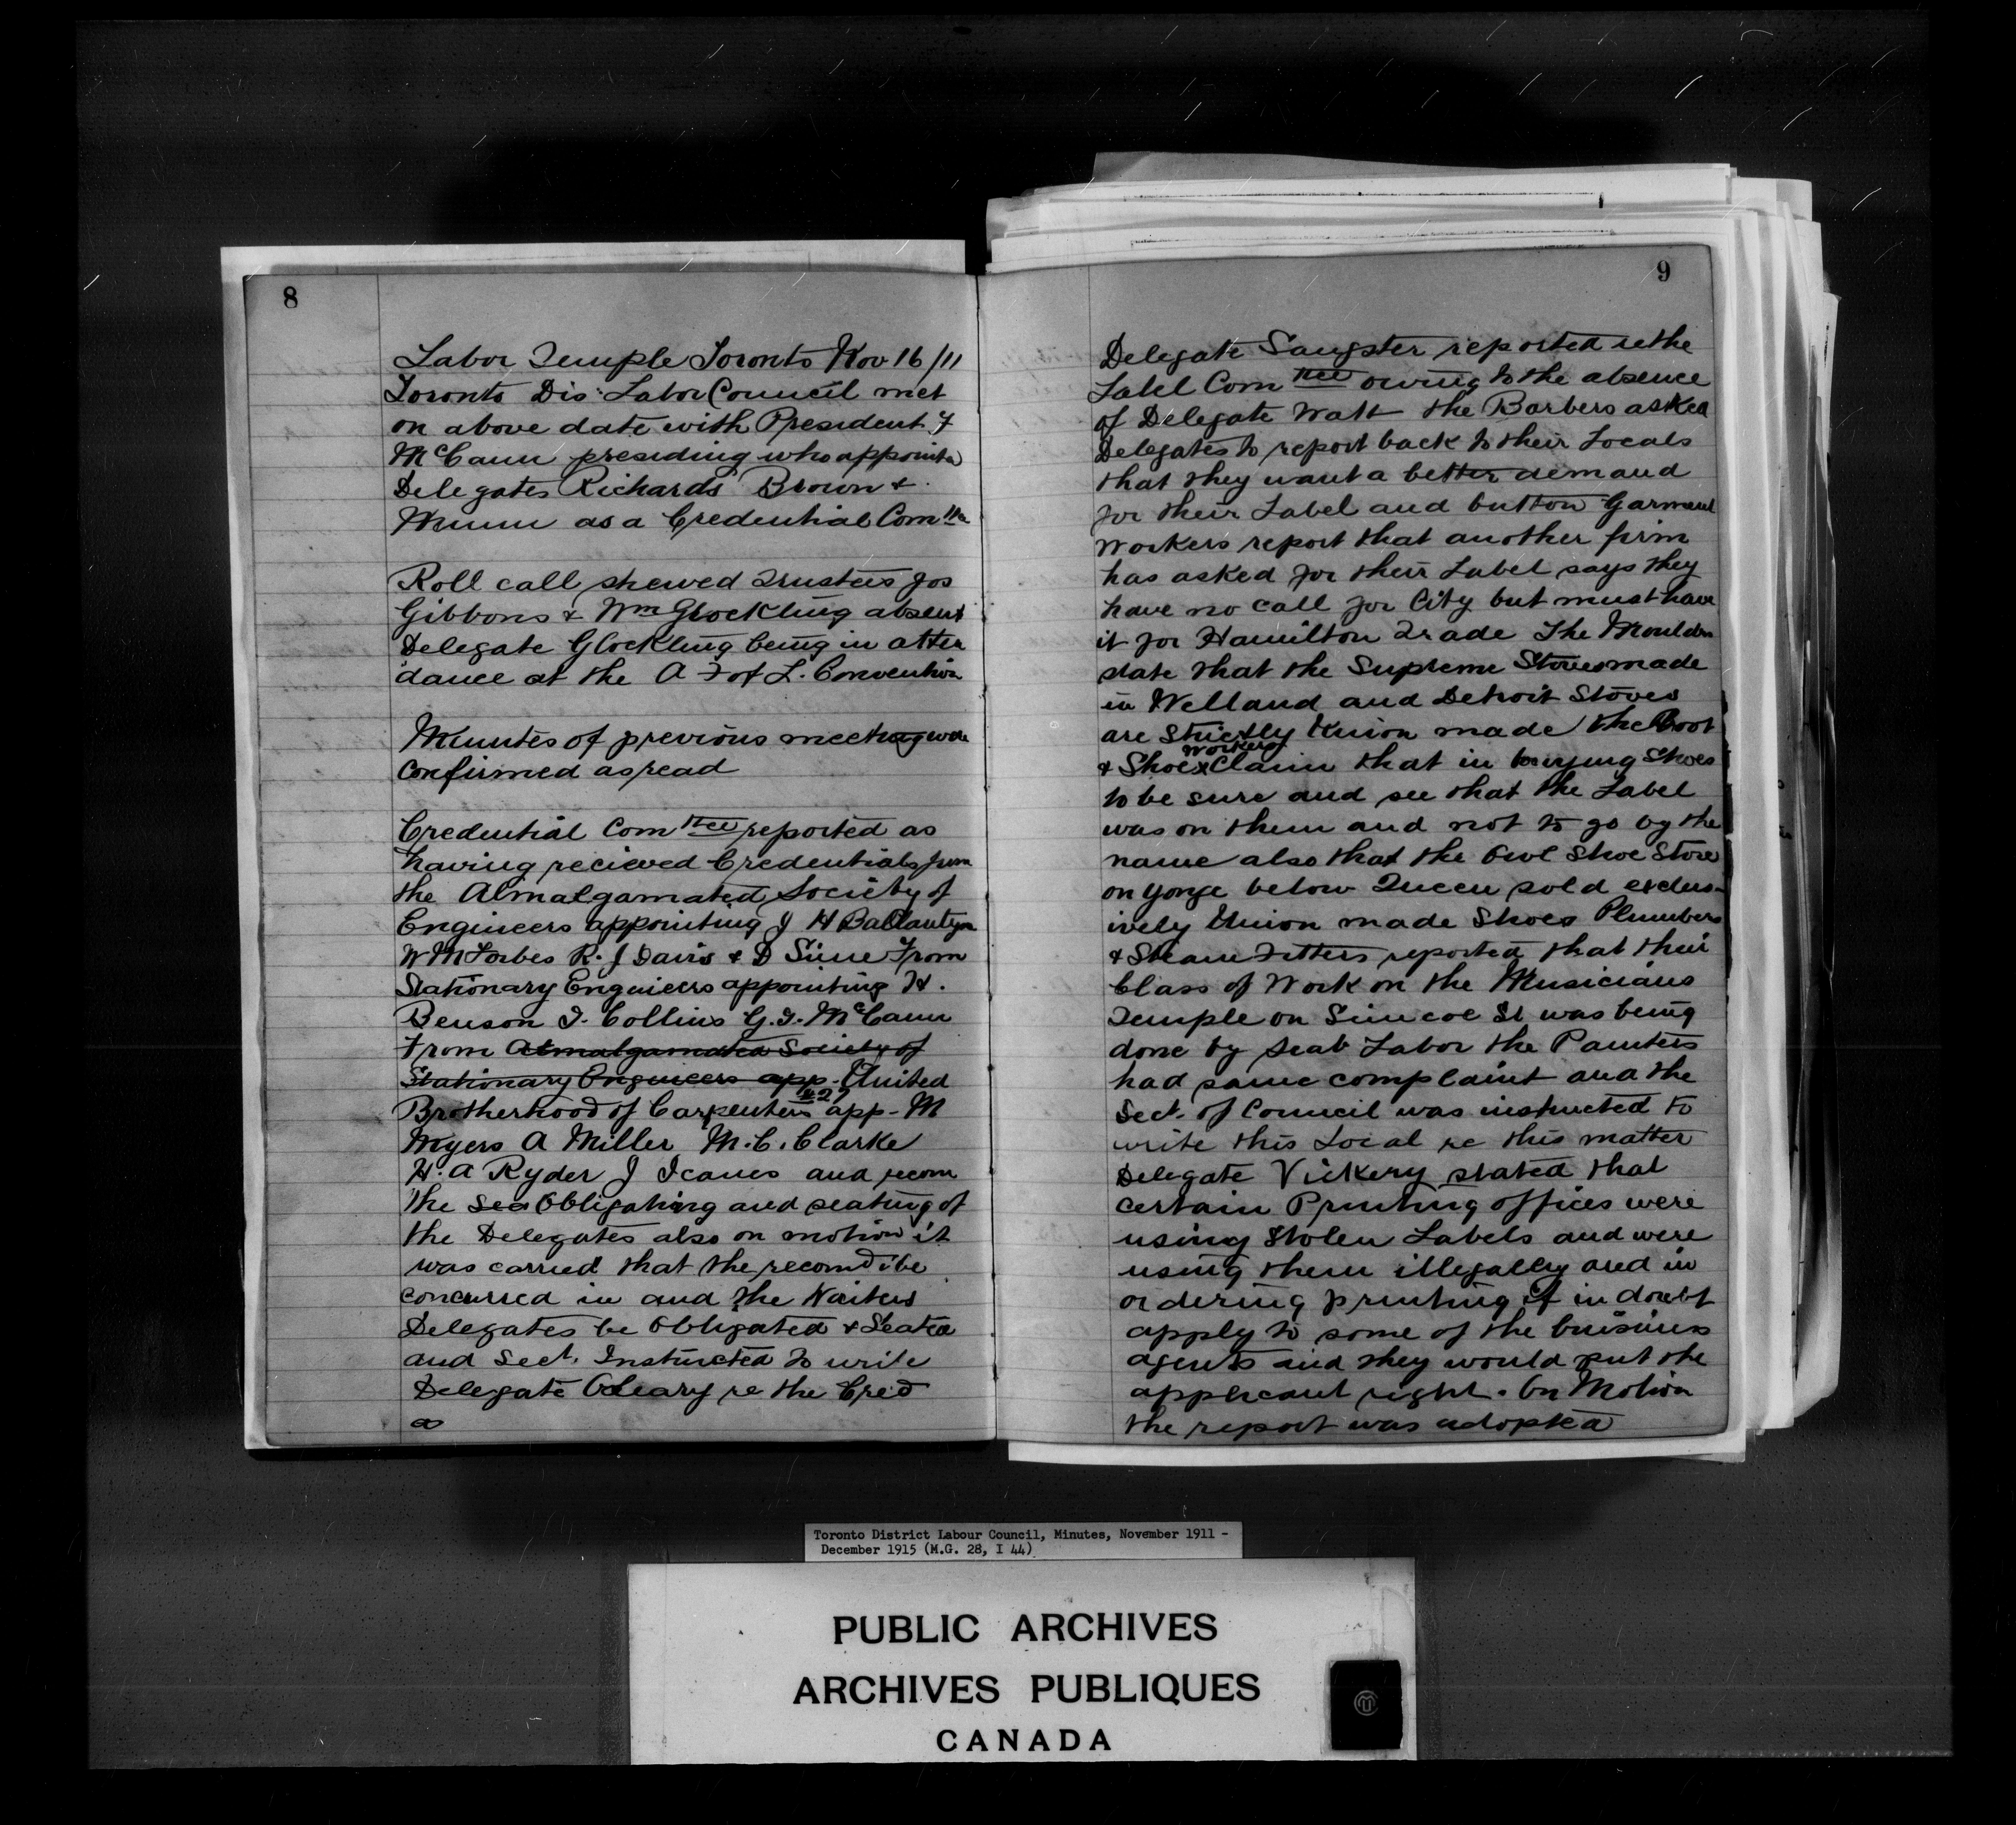 8
Labor Temple Toronto Nov 16/11
Toronto Dis: Labor Council met
on above date with President J
McCann presiding who appointed
Delegates Richards Brown &
Munn as a Credential Comttee
Roll call shewed Trustees Jos
Gibbons & Wm Glockling absent
Delegate Glockling being in atten
dance at the A F of L. Convention
Minutes of previous meeting were
confirmed as read
Credential Comttee reported as
having recieved Credentials from
the Almalgamated Society of
Engineers appointing J H Ballantyn
W M Forbes R. J Davis & D Sime From
Stationary Engineers appointing H.
Benson J. Collins G. J. McCann
From Almalgamated Society of
Stationary Engineers app- United
Brotherhood of Carpenters #27 app- M
Myers A Miller M. C. Clarke
H. A Ryder J and recom
the Obligating and seating of
the Delegates also on motion it
was carried that the recomd be
concurred in and the Waiters
Delegates be Obligated & Seated
and Sect. Instructed to write
Delegate OLeary re the Cred
9
Delegate Sangster reported re the
Label Comttee owing to the absence
of Delegate Watt the Barbers asked
Delegates to report back to their Locals
that they want a better demand
for their Label and button Garment
Workers report that another firm
has asked for their Label says they
have no call for City but must have
it for Hamilton Trade The Moulders
state that the Supreme Stoves made
in Welland and Detroit Stoves
are Strictly Union made the Boot
& Shoe Workers Claim that in buying Shoes
to be sure and see that the Label
was on them and not to go by the
name also that the Owl Shoe Store
on Yonge below Queen sold exclus-
ively Union made Shoes Plumbers
& Steam Fitters reported that their
Class of Work on the Musicians
Temple on Simcoe St was being
done by Scab Labor the Painters
had same complaint and the
Sect. of Council was instructed to
write this Local re this matter
Delegate Vickery stated that
certain Printing offices were
using Stolen Labels and were
using them illegally and in
ordering printing if in doubt
apply to some of the business
agents and they would put the
applicant right. On Motion
the report was adopted
Toronto District Labour Council, Minutes, November 1911 -
December 1915 (M.G. 28, I 44)
PUBLIC ARCHIVES
ARCHIVES PUBLIQUES
CANADA